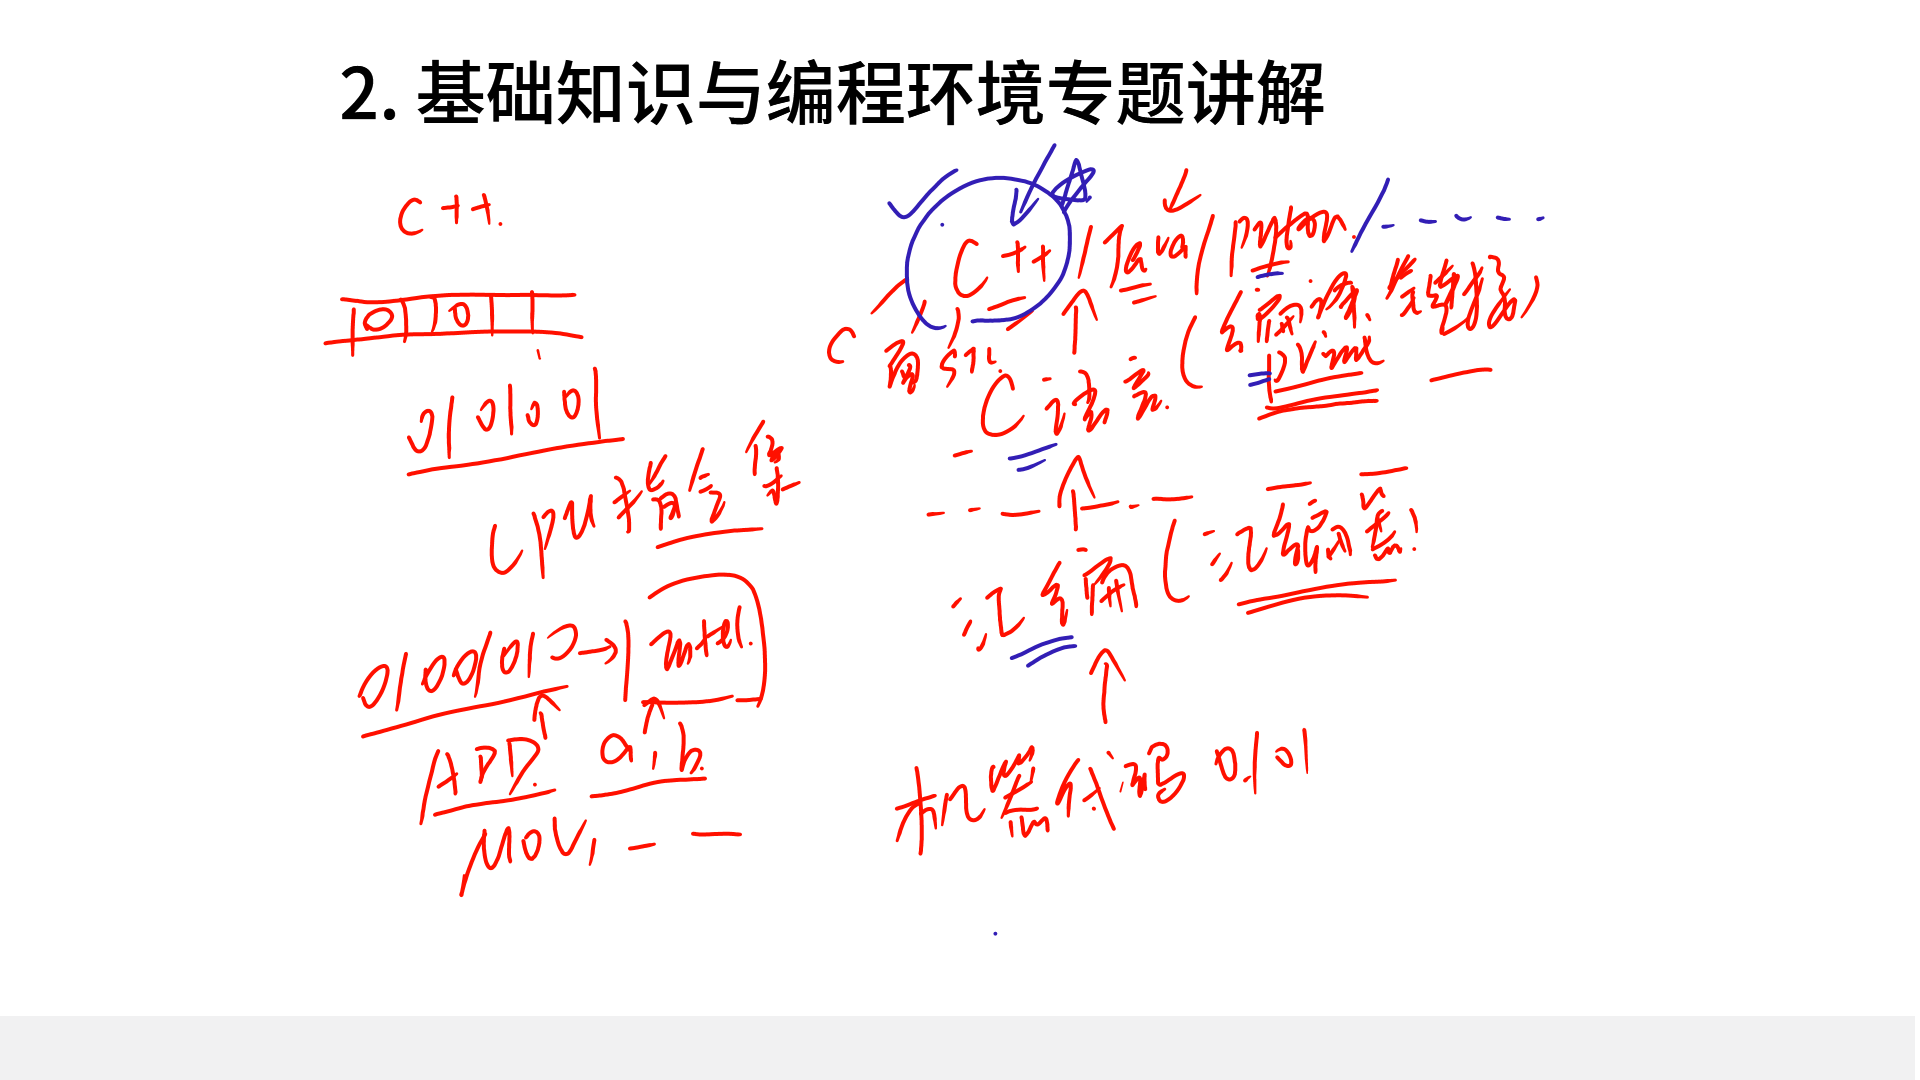 2. 基础知识与编程环境专题讲解
C++.
0 | 0
0101001
CPU指令集
01001010→ Intel.
ADD. a, b.
MOV,
C++ / Java / Python. /
C
STL
C语言. (编译器. 链接)
汇编 (汇编器)
机器代码 0101